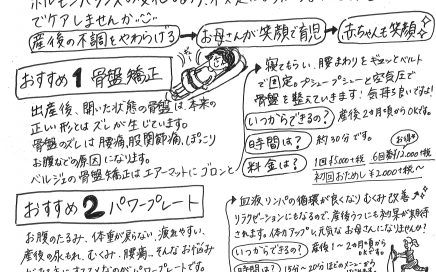 でケアしませんか
産後の不調をやわらげる
お母さんが笑顔で育児
赤ちゃんも笑顔
おすすめ1 骨盤矯正
出産後、開いた状態の骨盤は、本来の
正しい形とはズレが生じています。
骨盤のズレは腰痛、股関節痛、ぽっこり
お腹などの原因になります。
ベルジェの骨盤矯正はエアーマットにゴロンと
寝てもらい、腰まわりをギュッとベルト
で固定。プシュープシューと空気圧で
骨盤を整えていきます!気持ち良いですよ!
いつからできるの?
産後2ヶ月頃からOKです。
時間は?
約30分です。
お得
料金は?
1回¥5000+税
6回券¥12,000+税
初回おためし ¥2,000+税〜
おすすめ2 パワープレート
お腹のたるみ、体重が戻らない、疲れやすい、
産後の尿もれ、むくみ、腰痛…そんなお悩み
パワープレートです。
血液、リンパの循環が良くなり むくみ改善
リラクゼーションにもなるので、産後うつにも効果が期待
されます。体力アップし元気なお母さんになりませんか!
いつからできるの?
産後1〜2ヶ月頃から
OKです。
時間は?
15分〜20分ほどのメニュー